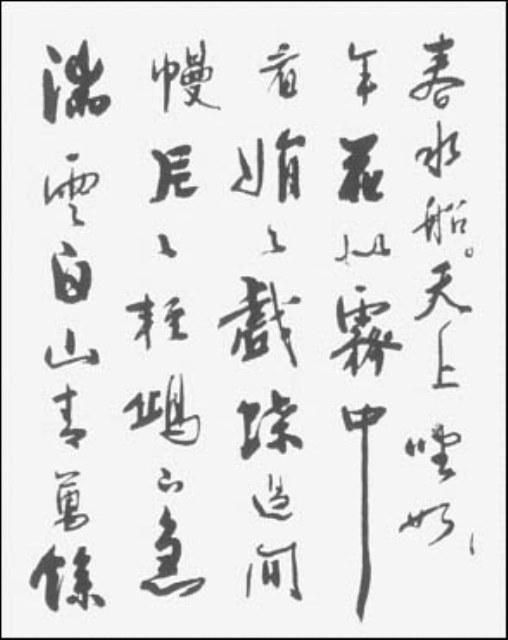 春水船天上坐如
年花似霧中
看娟〻戲蝶過閒
幔片〻輕鷗下急
湍雲白山青萬餘